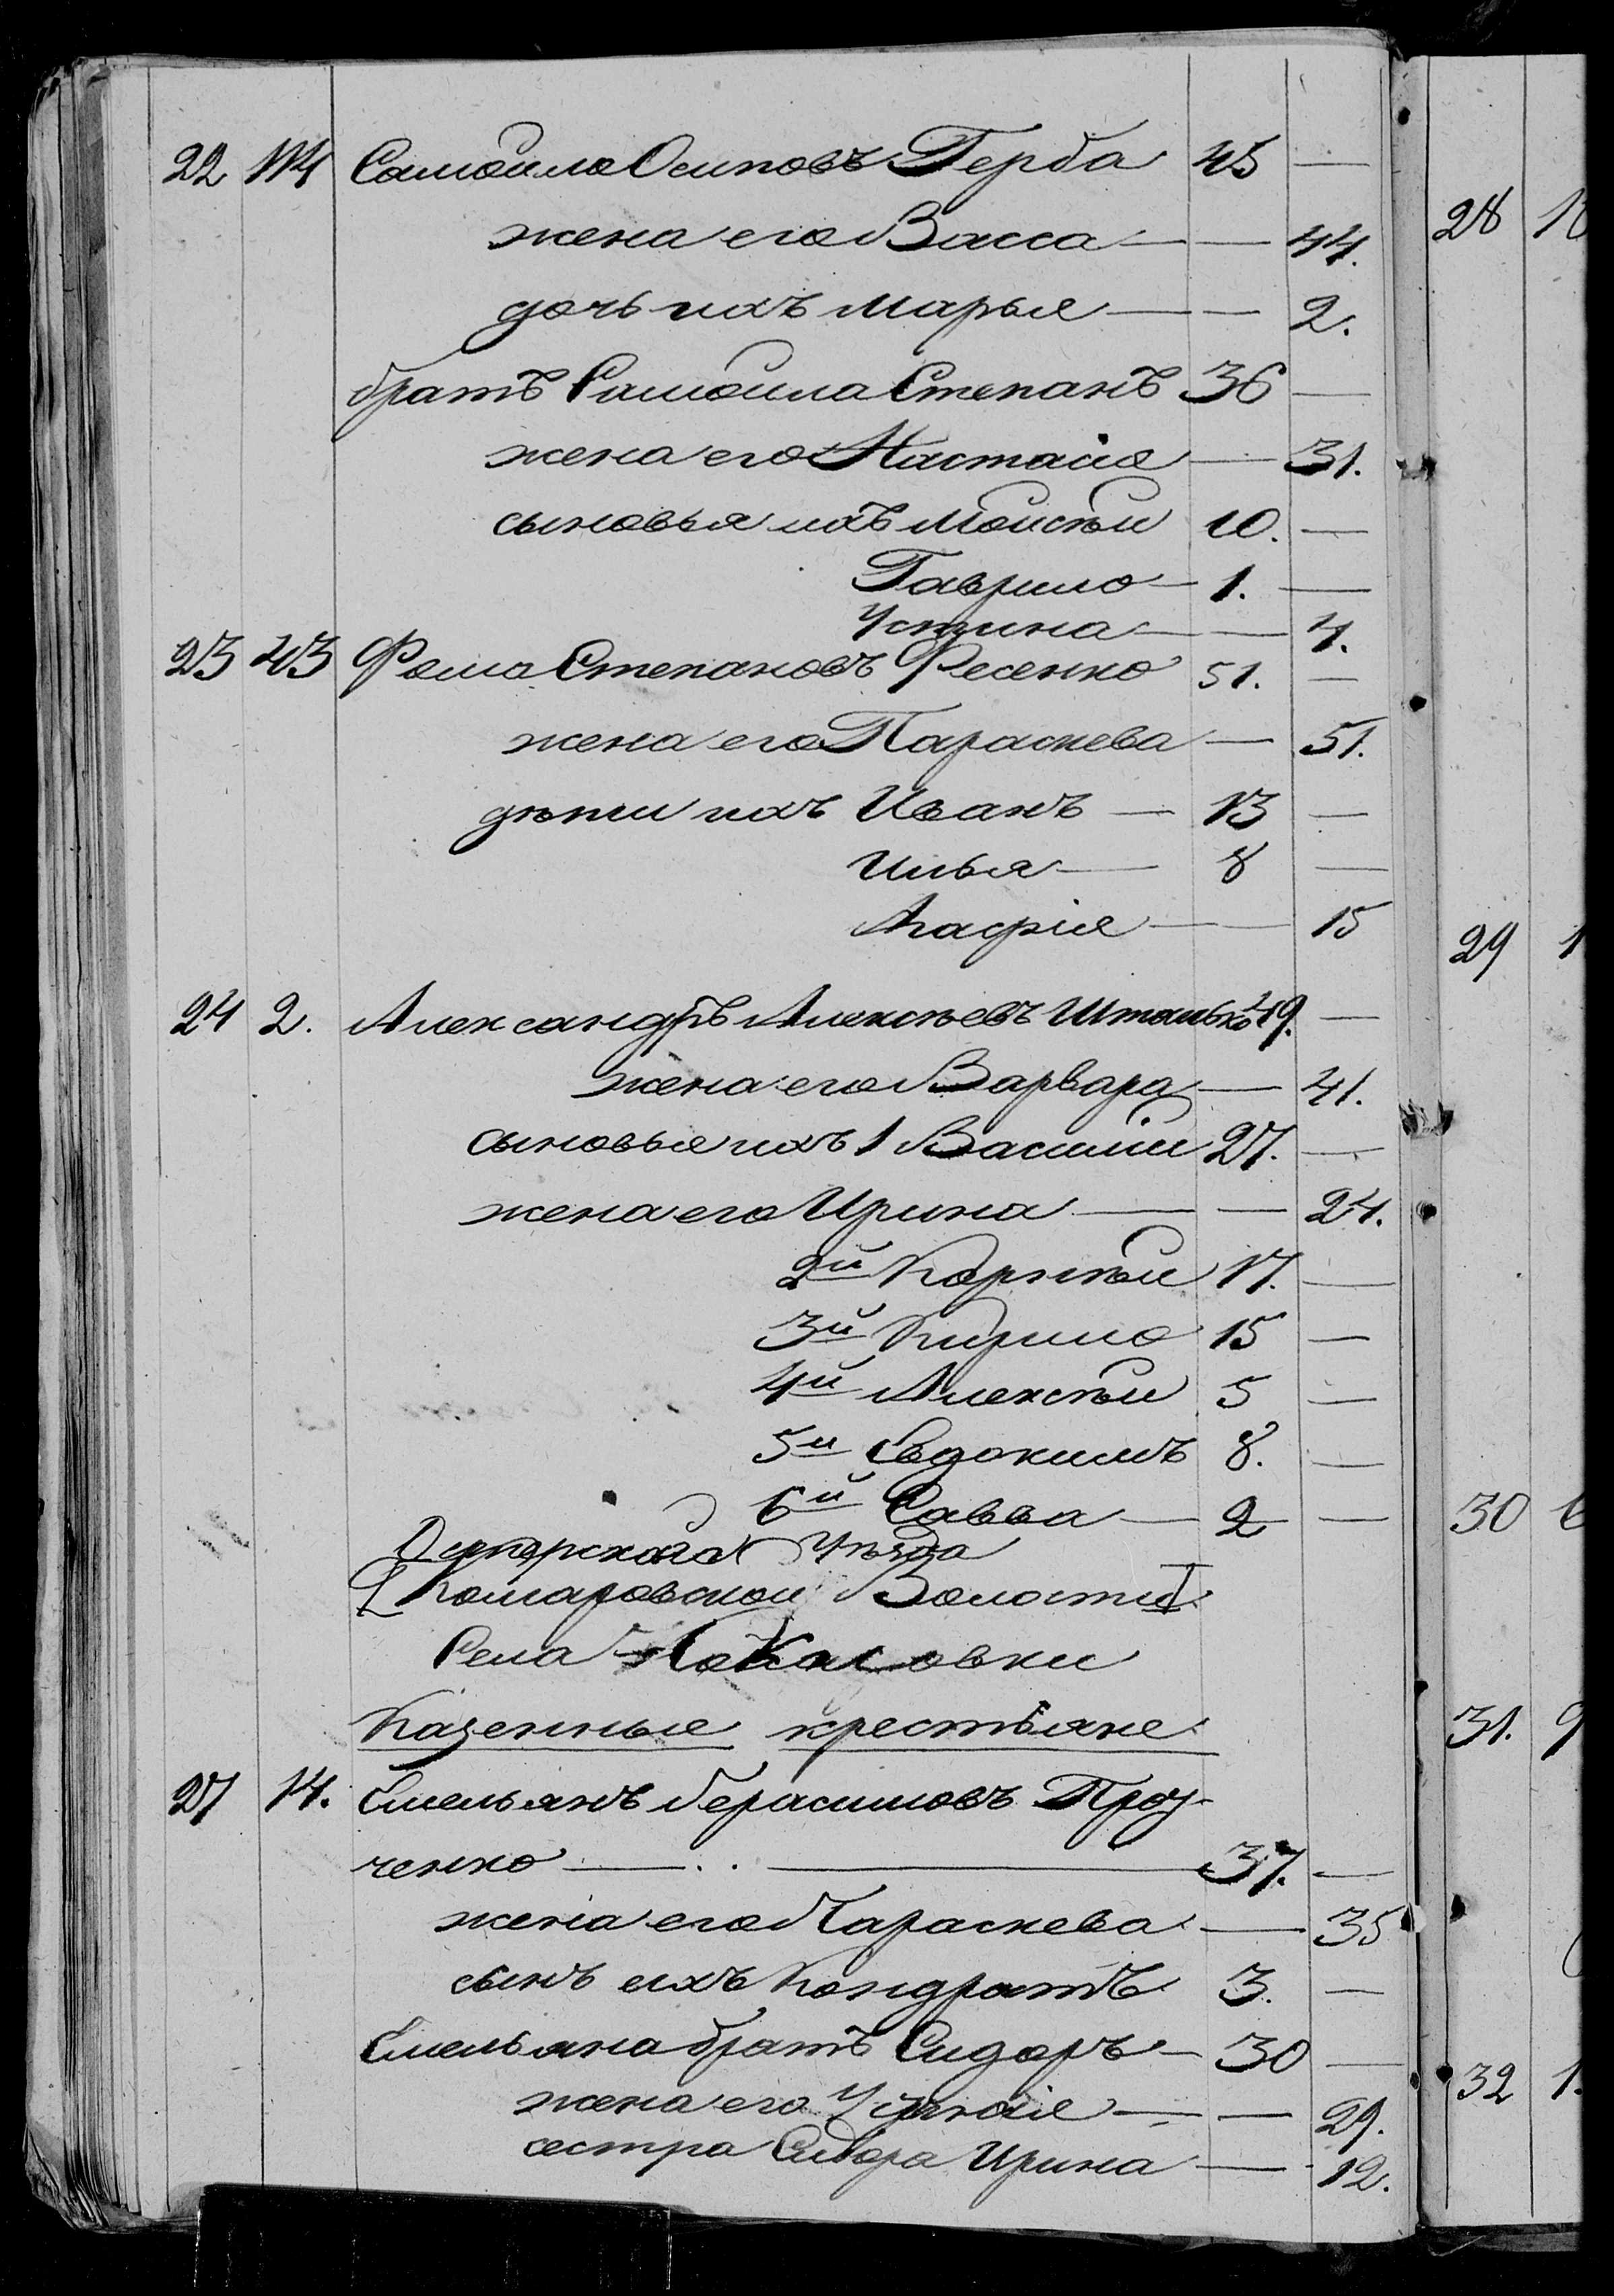 22 114 Самойло Осиповъ Герба 45 —
жена его Васса — — 44.
дочь ихъ Марья — — 2.
братъ Самойла Степанъ 36 —
жена его Настасія — 31.
сыновья ихъ Моисѣй 10. —
Гаврило — 1. —
Устина — — 4.
23 43 Фома Степановъ Фесенко 51. —
жена его Параскева — 51.
дѣти ихъ Иванъ — 13 —
Илья — 8 —
Агафія — — 15
24 2. Александръ Алексѣевъ Штанько 49. —
жена его Варвара — 41.
сыновья ихъ 1 Василій 27. —
жена его Ирина — — 24.
2й Корнѣй 17. —
3й Кирило 15 —
4й Алексѣй 5 —
5й Евдокимъ 8. —
6й Савва — 2 —
Уѣзда
Комаровской Волости
Села
Казенные крестьяне
27 14. Емельянъ Герасимовъ Про-
ченко — 37. —
жена его Параскева — 35
сынъ ихъ Кондратъ 3. —
Емельяна братъ Сидоръ — 30 —
жена его — — 29.
сестра Сидора Ирина — 12.
28
29
30
31. 9
32